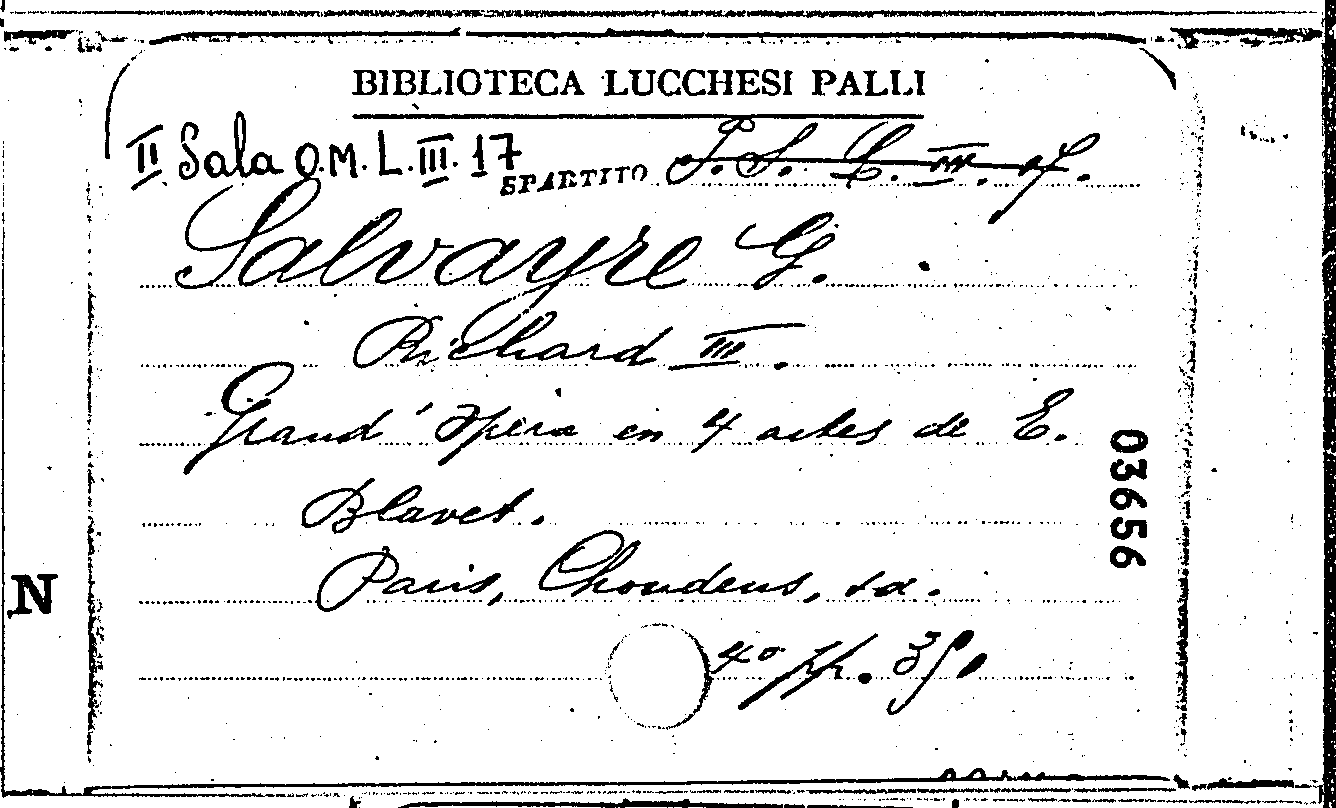 BIBLIOTECA LUCCHESI PALLI
II Sala O.M. L. III. 17 SPARTITO P. S. L. III. 17.
Salvayre G.
Richard III.
Grand' Opéra en 4 actes de E.
Blavet.
Paris, Choudens, sd.
4º pp.
03656
N